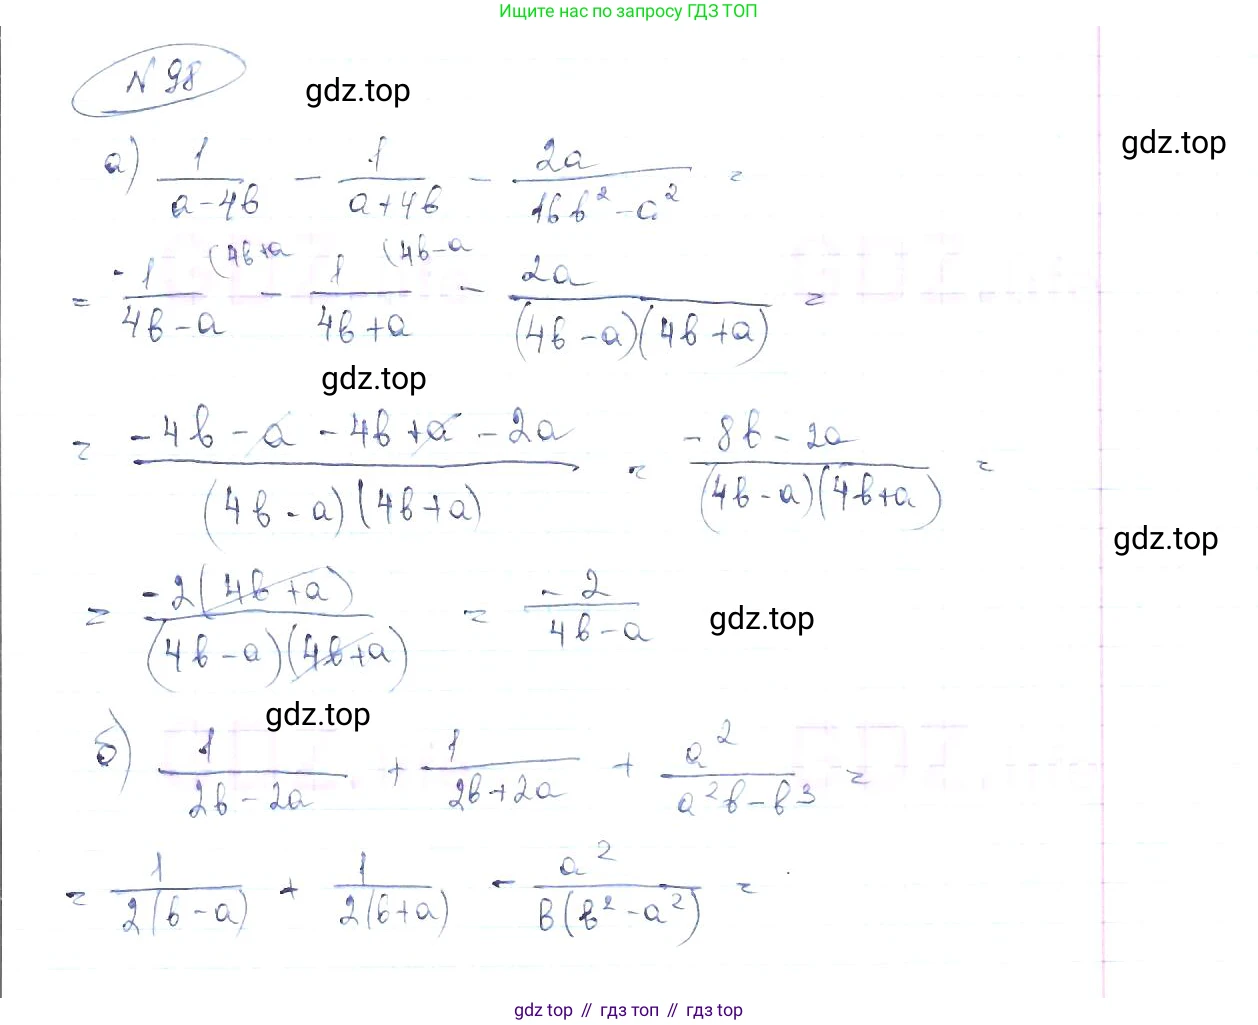 Ищите нас по запросу ГДЗ ТОП
N 98
gdz.top
gdz.top
а) 1/(a-4b) - 1/(a+4b) - 2a/(16b² - a²) =
= -1/(4b-a) (4b+a - 1/(4b+a) (4b-a - 2a/((4b-a)(4b+a)) =
gdz.top
= (-4b - a - 4b + a - 2a)/((4b-a)(4b+a)) = (-8b - 2a)/((4b-a)(4b+a)) =
gdz.top
= -2(4b+a)/((4b-a)(4b+a)) = -2/(4b-a)
gdz.top
gdz.top
б) 1/(2b-2a) + 1/(2b+2a) + a²/(a²b-b³) =
= 1/(2(b-a)) + 1/(2(b+a)) - a²/(b(b²-a²)) =
gdz top // гдз топ // gdz top